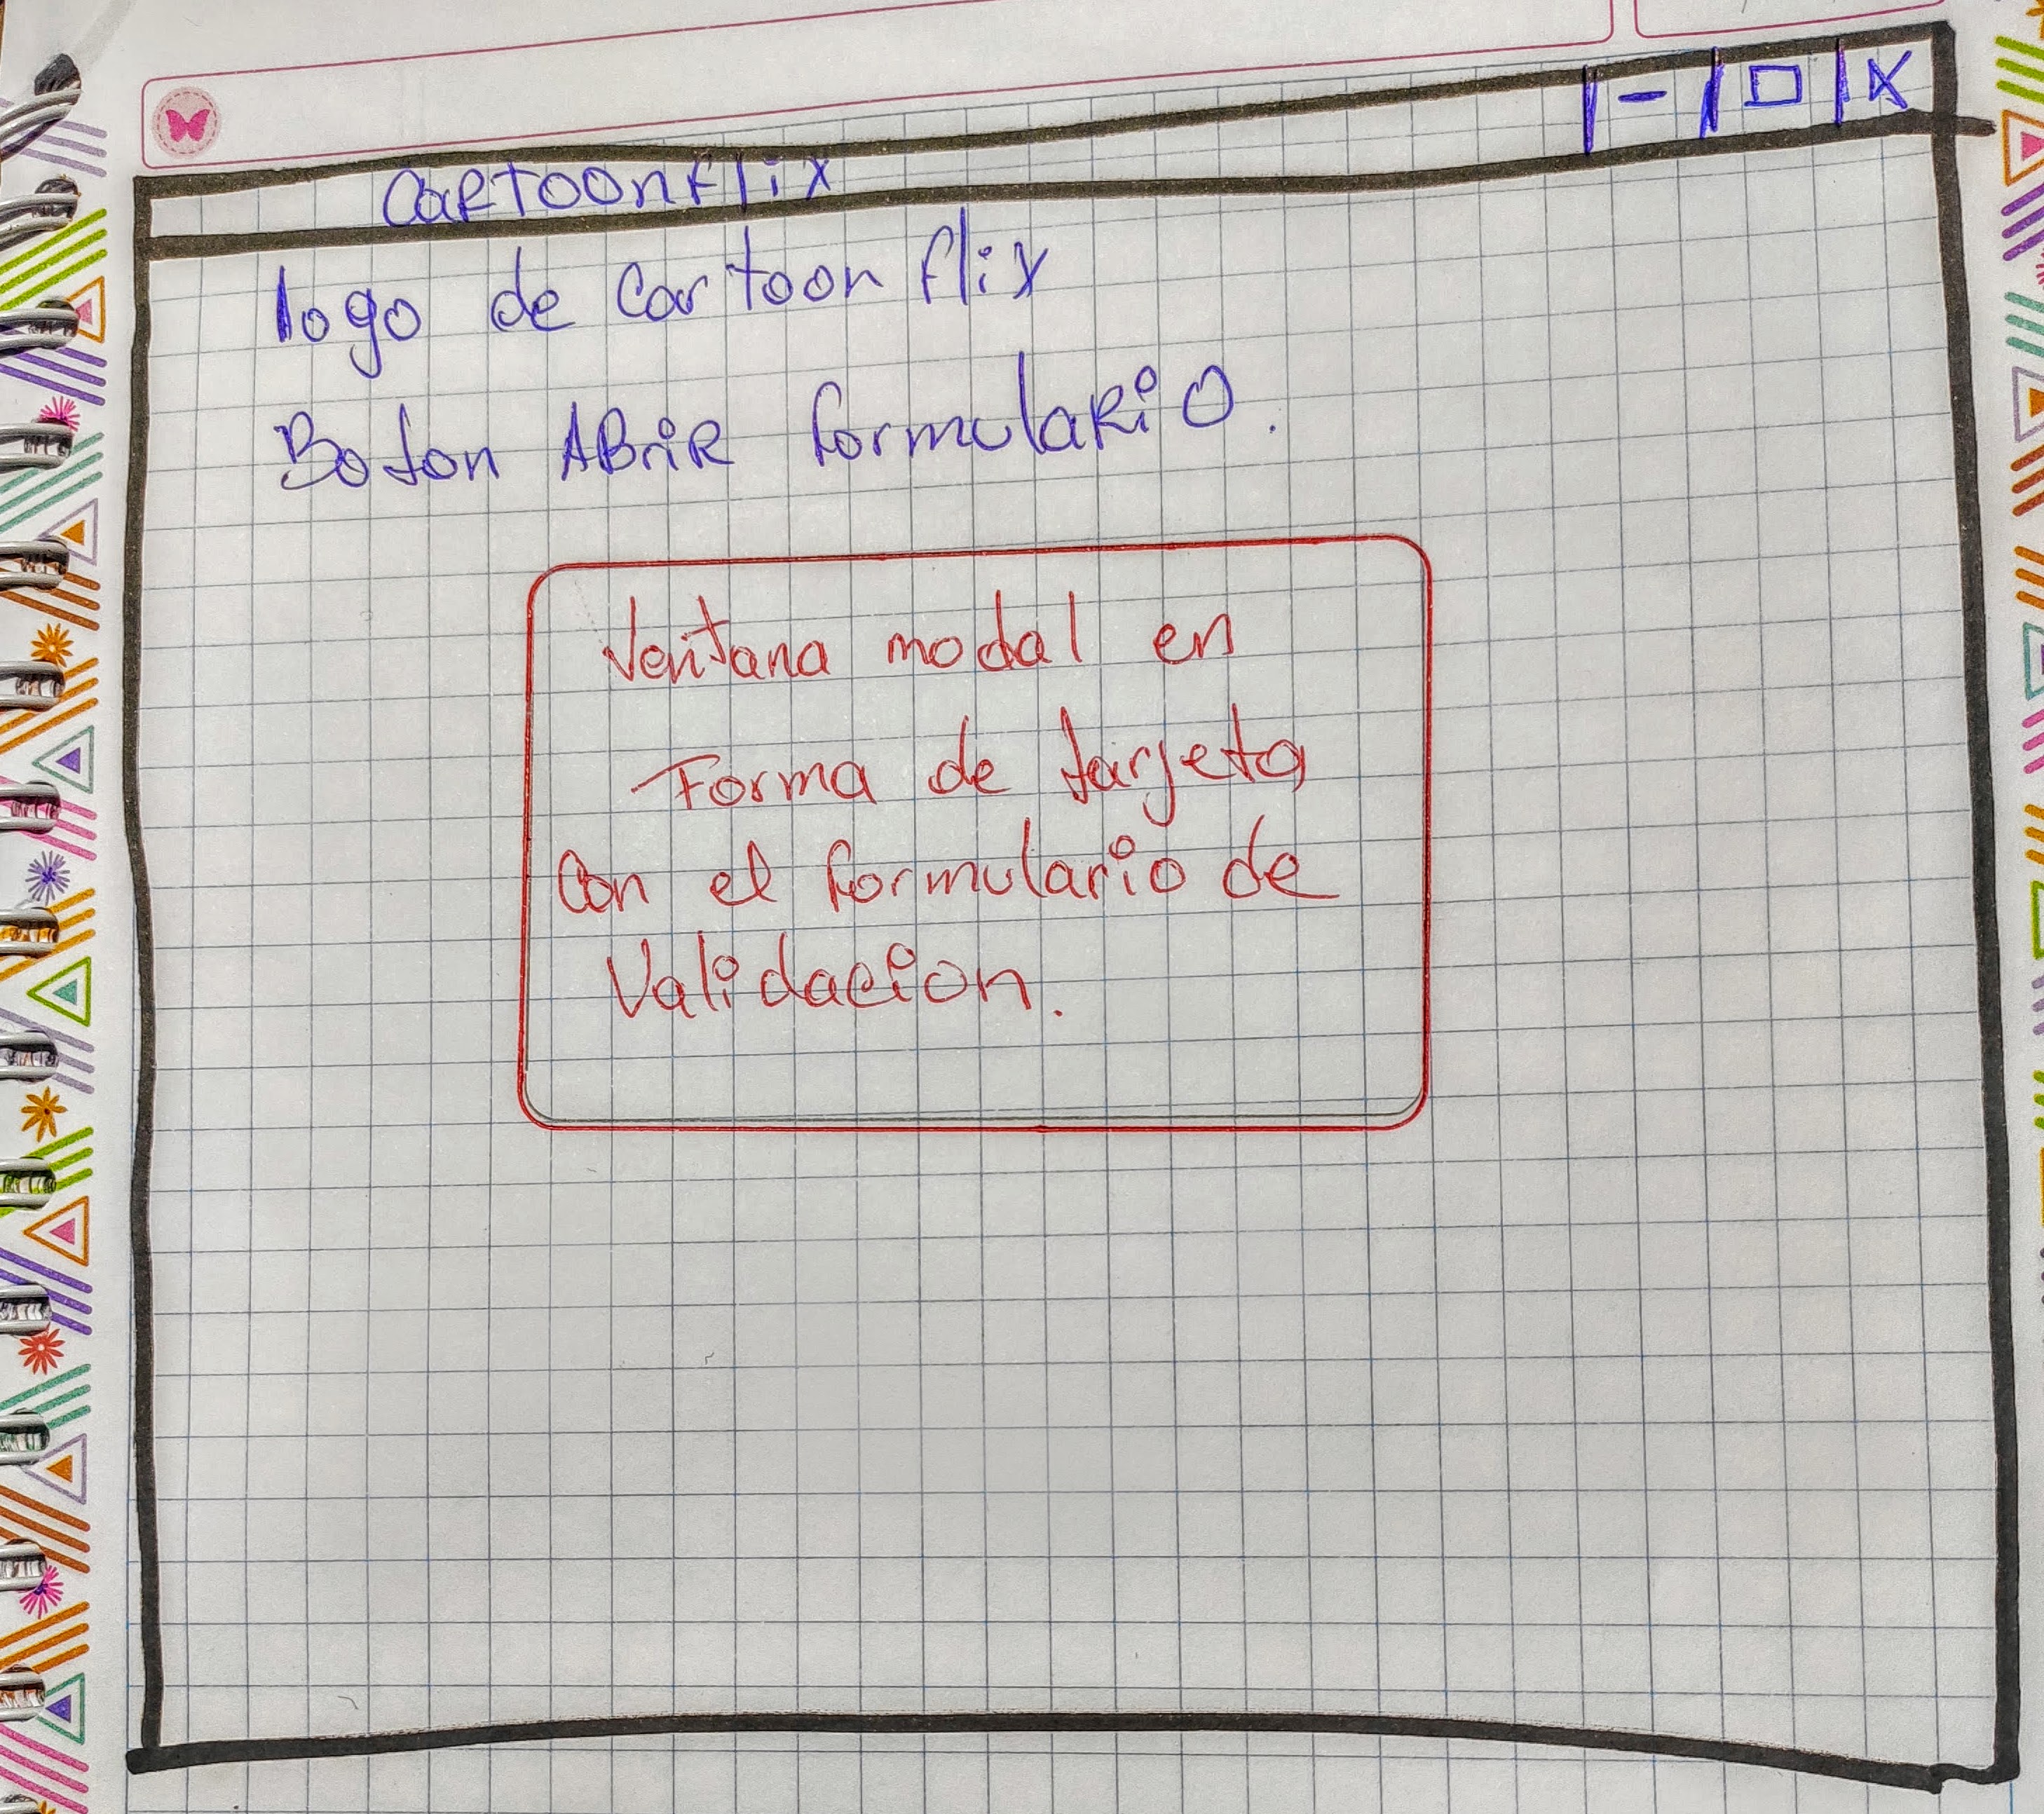 CARTOONFlix
logo de Cartoon flix
Boton ABRIR formulaRiO.
Ventana modal en
Forma de tarjeta
Con el formulario de
Validacion.